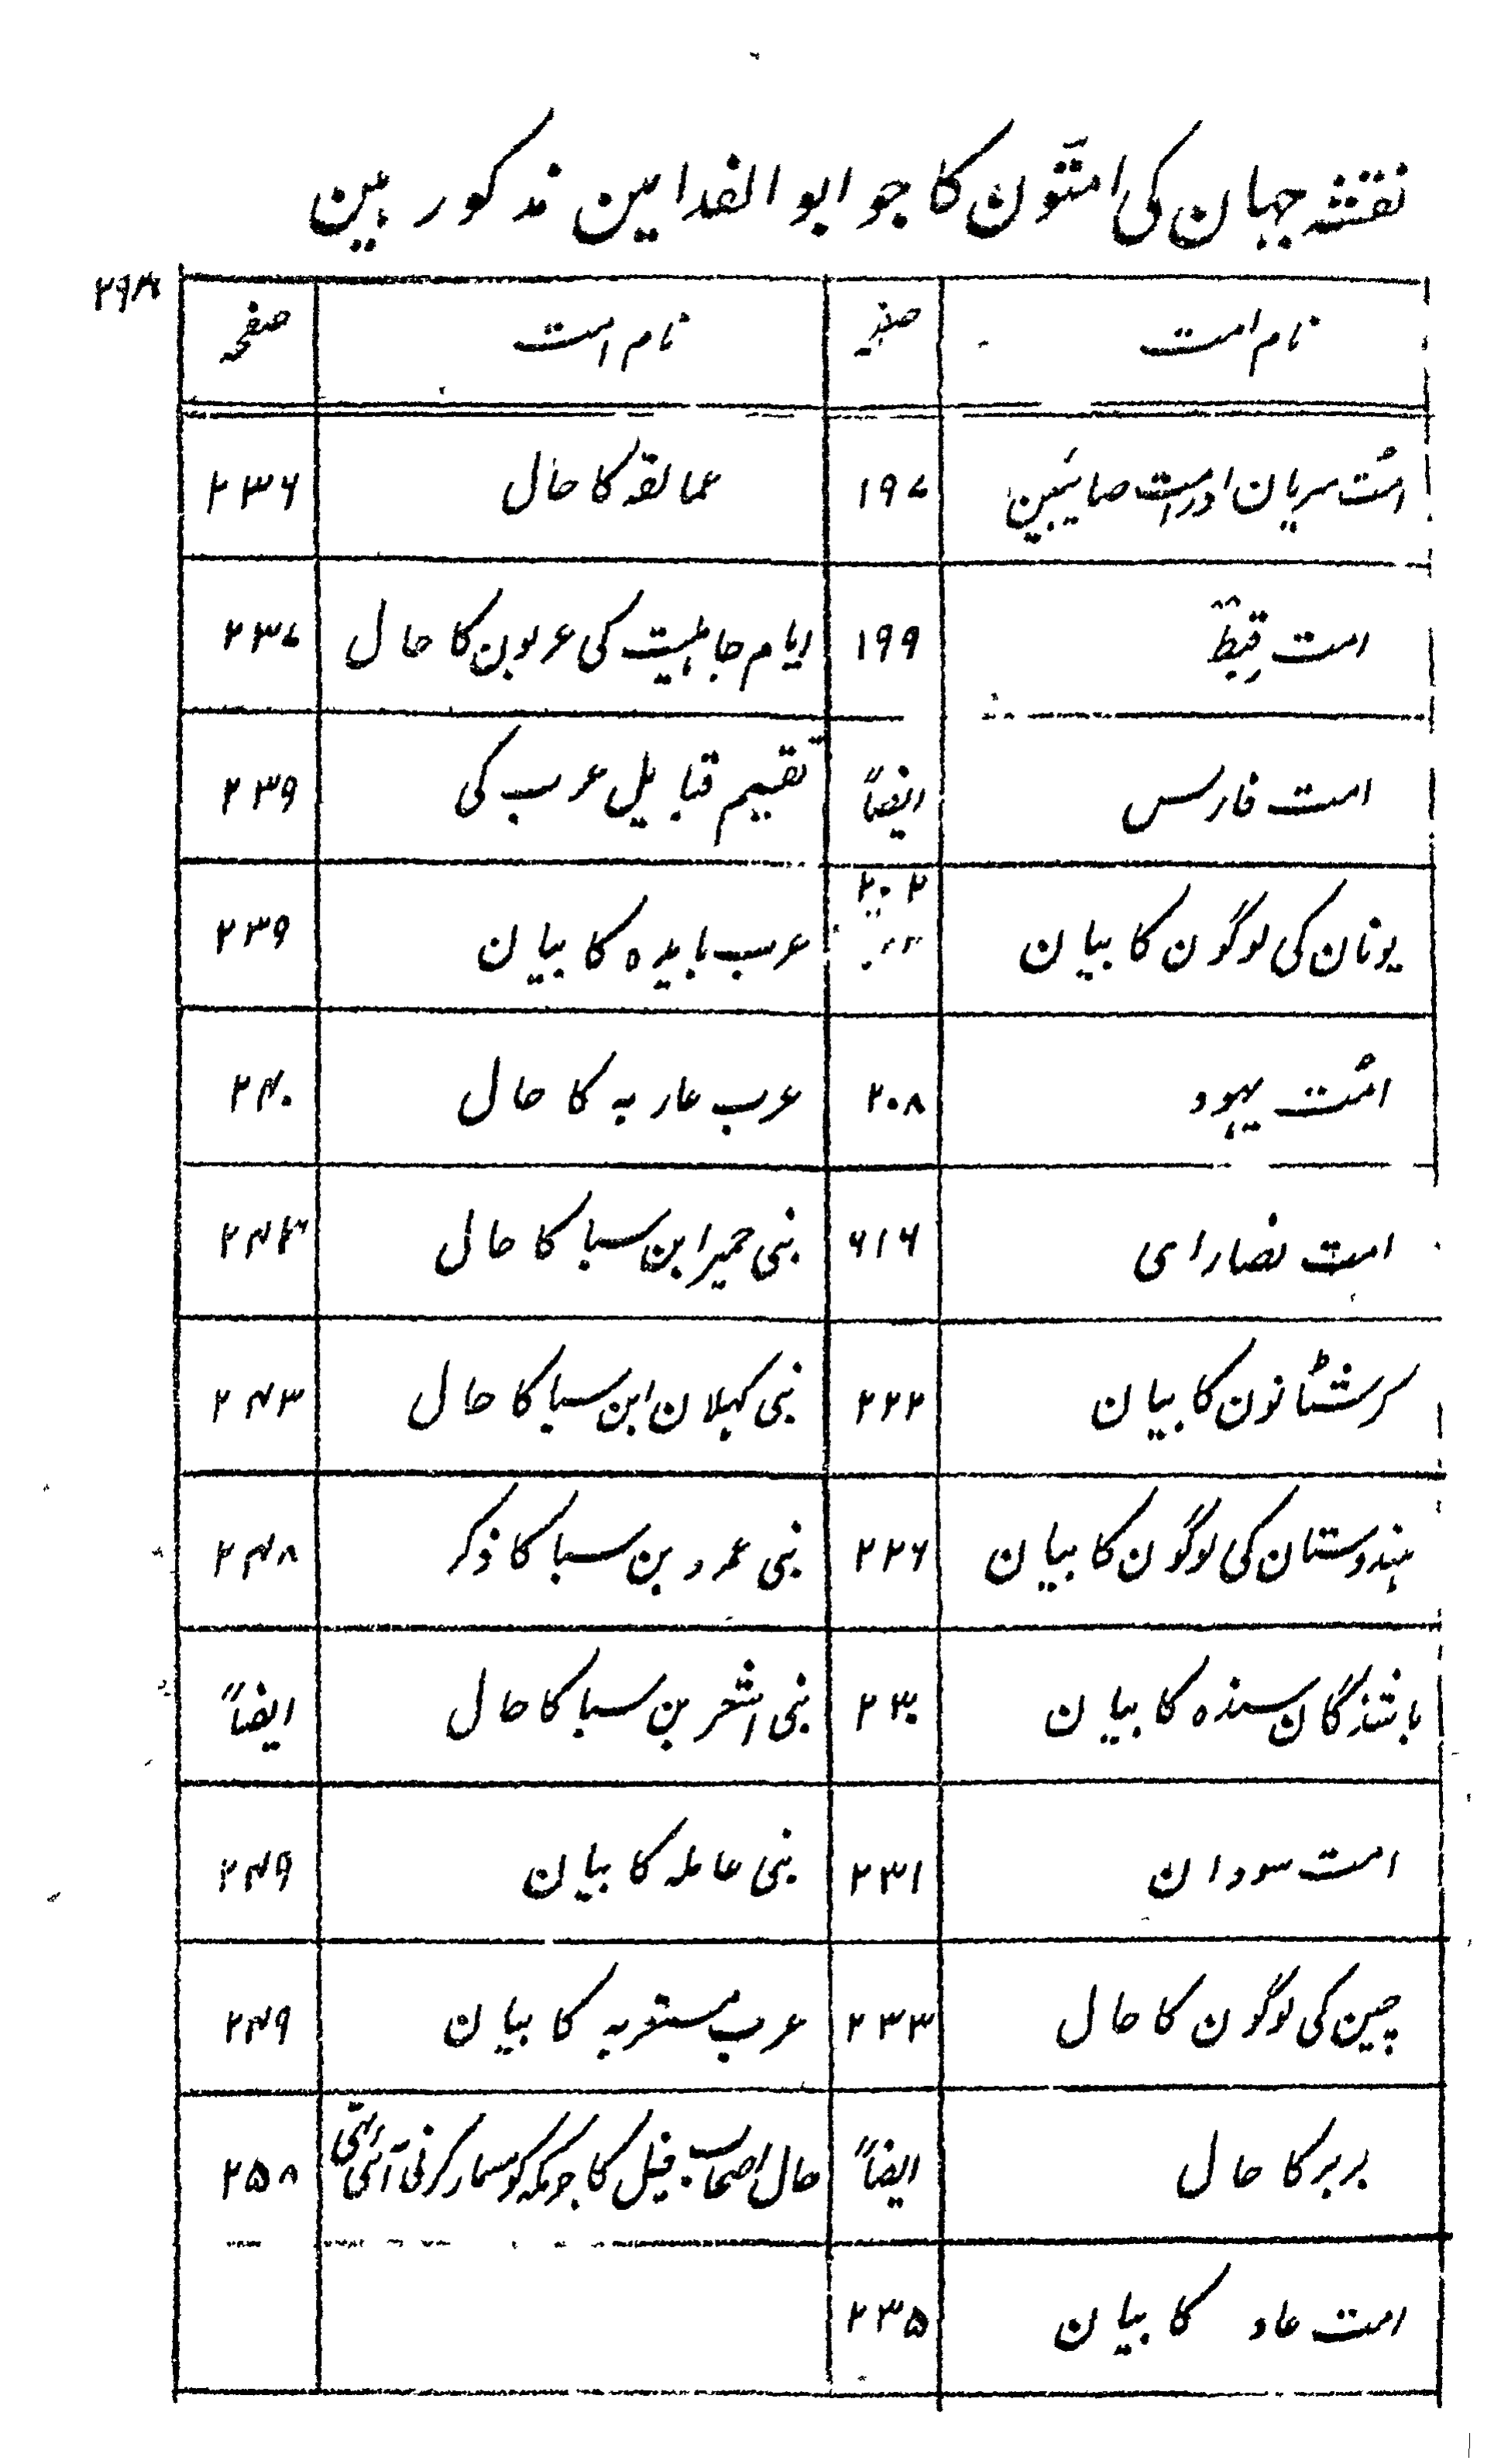 نقشہ جہان کی امتّون کا جو ابو الفدا مین مذکور ہین
۲۹۴
نام امت صفحہ نام امت صفحہ
امُت سریان اور امت صایَبین ۱۹۷ عمالقہ کا حال ۲۳۶
امت قِبط ۱۹۹ ایام جاہلیت کی عربون کا حال ۲۳۷
امت فارس ایضاً تقسیم قبایل عرب کی ۲۳۹
یونان کی لوگون کا بیان ۲۰۲ عرب بایدہ کا بیان ۲۳۹
امُت یہود ۲۰۸ عرب عاربہ کا حال ۲۴۰
امت نصارای ۶۱۶ بنی حمیر ابن سبا کا حال
کرشٹانون کا بیان ۲۲۲ بنی کہلان ابن سبا کا حال ۲۴۳
ہندوستان کی لوگون کا بیان ۲۲۶ بنی عمرو بن سبا کا ذکر ۲۴۸
باشندگان سندہ کا بیان ۲۳۰ بنی اشعر بن سبا کا حال ایضاً
امت سودان ۲۳۱ بنی عاملہ کا بیان ۲۴۹
چین کی لوگون کا حال ۲۳۳ عرب مستعربہ کا بیان ۲۴۹
بربر کا حال ایضاً حال اصحاب فیل کا جو مکہ کو مسمار کرنی آئی تہی ۲۵۸
امت عاد کا بیان ۲۳۵